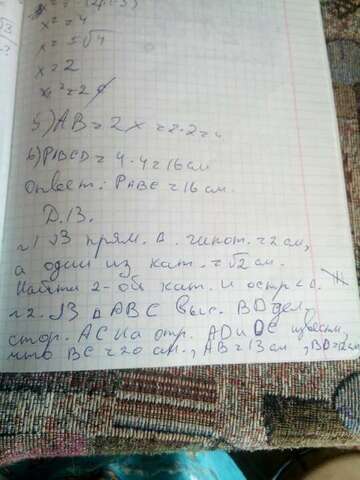 x² = 4
x = ±√4
x = 2
x² = 2
5) AB = 2x = 2·2 = 4
6) PABCD = 4·4 = 16 см
Ответ: PABC = 16 см.
Д.З.
№1 УЗ прям. Δ. гипот. = 2 см,
а один из кат. = √2 см.
Найти 2-ой кат. и остр ∠Δ.
№2. УЗ Δ ABC выс. BD дел.
стор. AC на отр. AD и DC извест,
что BC = 20 см., AB = 13 см, BD = 12 см